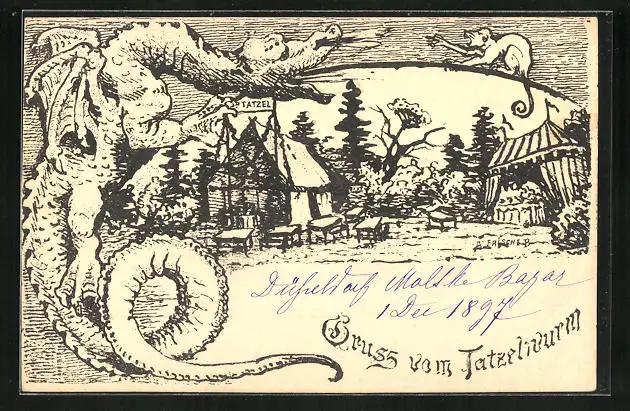 TATZEL
Düsseldorf Malske Bazar
1 Dec 1897
Gruss vom Tatzelwurm